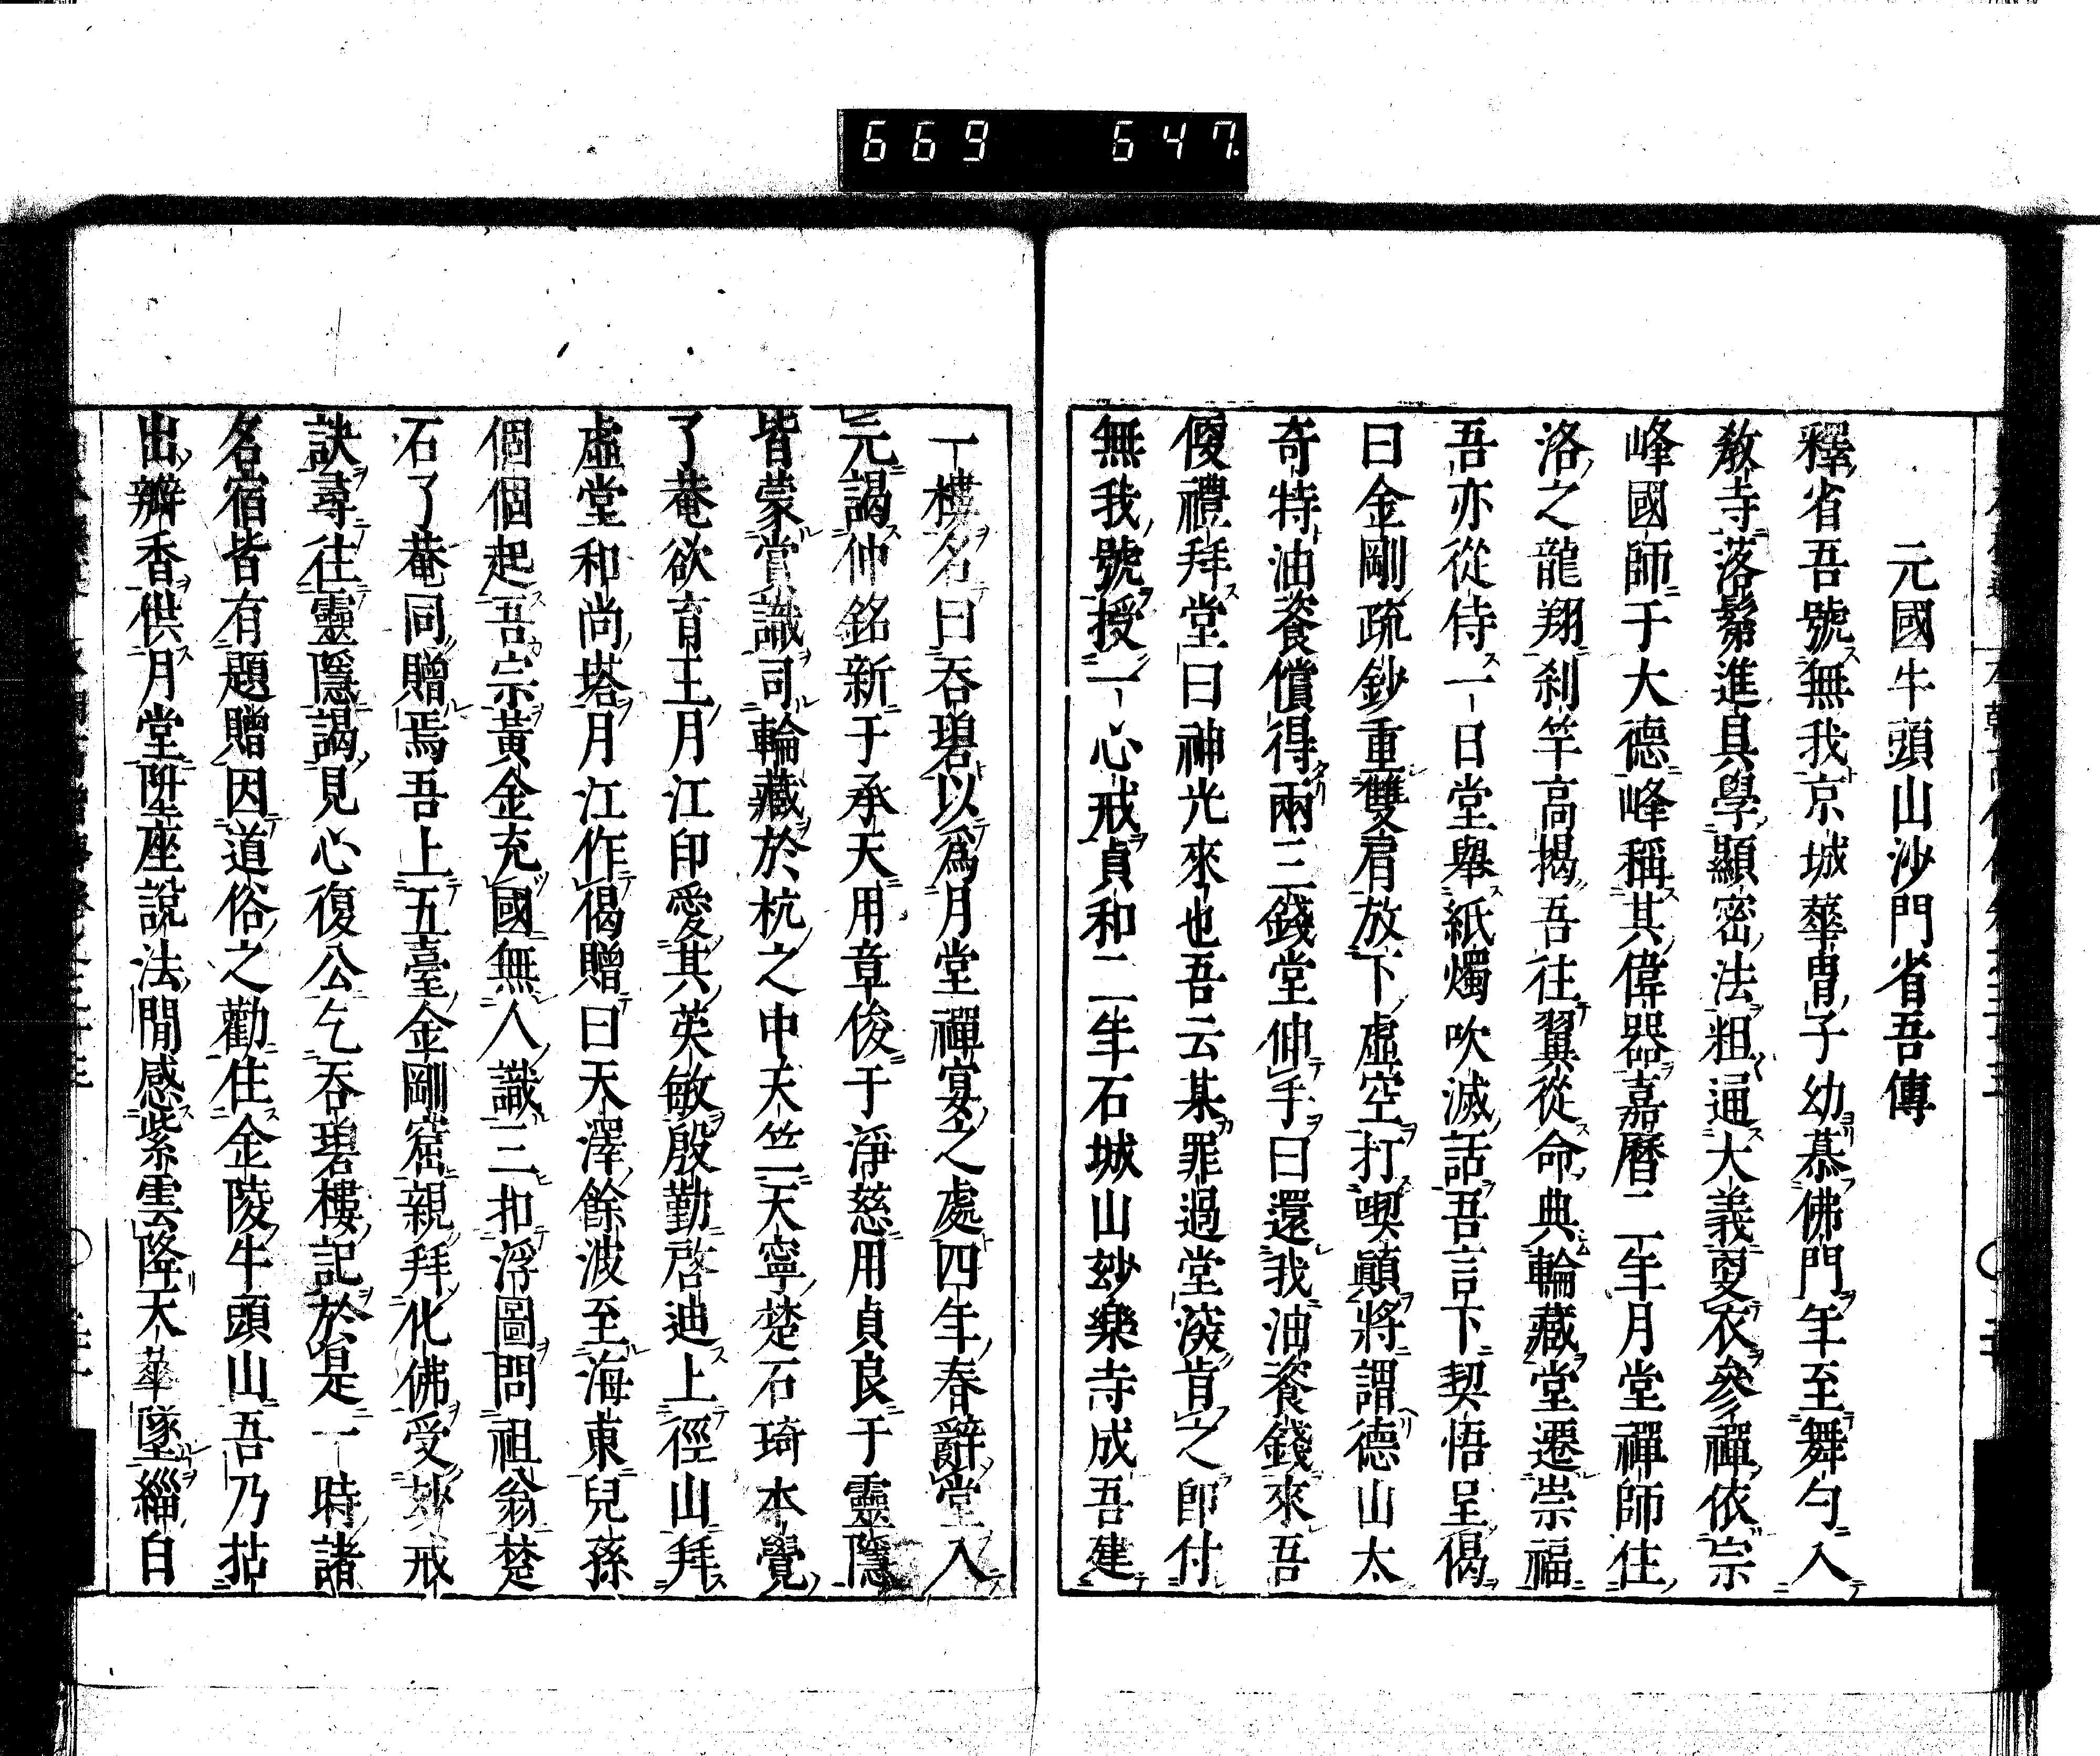 669 647
元國牛頭山沙門省吾傳
釋省吾號無我京城華胄子幼慕佛門年至舞勺入
教寺落髮進具學顯密法粗通大義更衣參禪依宗
峰國師于大德峰稱其偉器嘉曆二年月堂禪師住
洛之龍翔刹竿高揭吾往翼從命典輪藏堂遷崇福
吾亦從侍一日堂舉紙燭吹滅話吾言下契悟呈偈
曰金剛疏鈔重雙肩放下虛空打喫顛將謂德山太
奇特油餈償得兩三錢堂伸手曰還我油餈錢來吾
便禮拜堂曰神光來也吾云某罪過堂深肯之卽付
無我號授一心戒貞和二年石城山妙樂寺成吾建
一樓名曰吞碧以爲月堂禪宴之處四年春辭堂入
元謁仲銘新于承天用章俊于淨慈用貞良于靈隱
皆蒙賞識司輪藏於杭之中天竺天寧楚石琦本覺
了菴欲育王月江印愛其英敏殷勤啓迪上徑山拜
虛堂和尚塔月江作偈贈曰天澤餘波至海東兒孫
個個起吾宗黃金充國無人識三扣浮圖問祖翁楚
石了菴同贈焉吾上五臺金剛窟親拜化佛受妙戒
訣尋往靈隱謁見心復公乞吞碧樓記於是一時諸
名宿皆有題贈因道俗之勸住金陵牛頭山吾乃拈
出瓣香供月堂陞座說法閒感紫雲降天華墜緇白